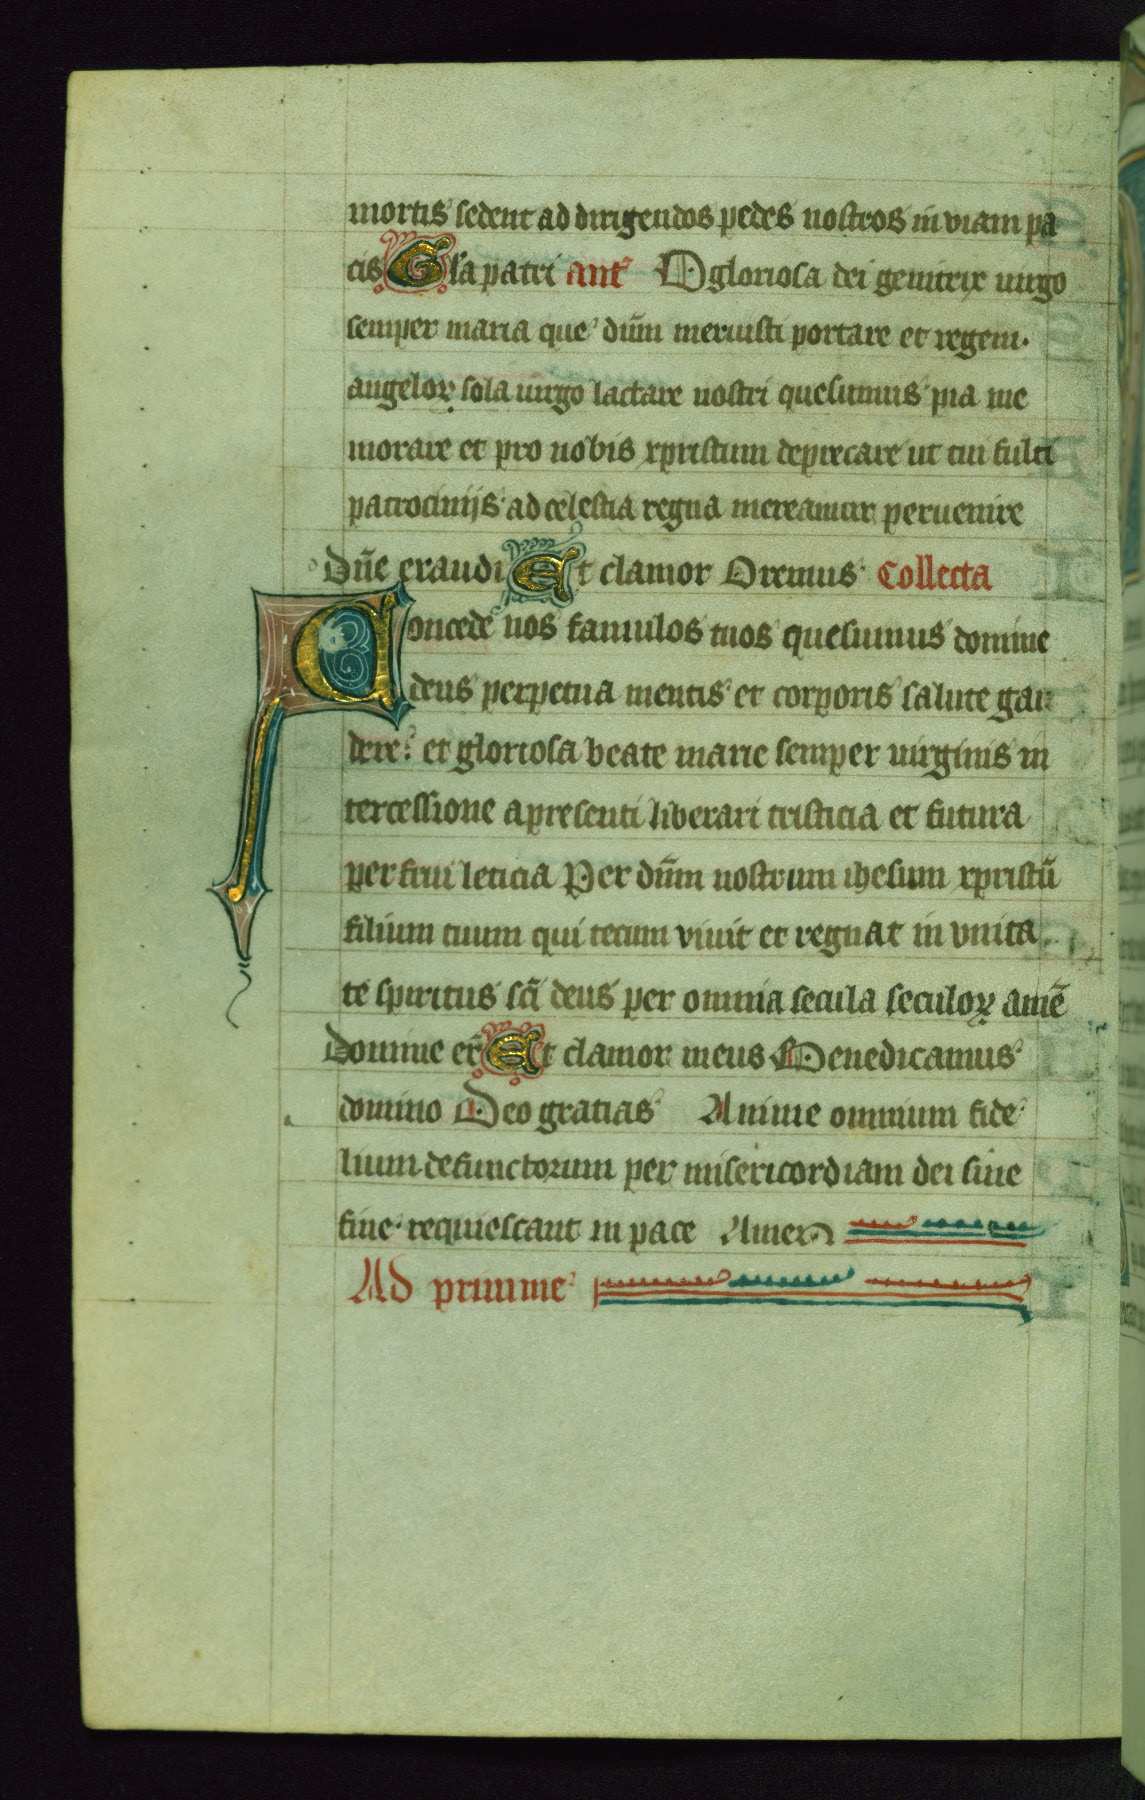 mortis sedent ad dirigendos pedes nostros in viam pa
cis Gl'a patri ant' O gloriosa dei genitrix uirgo
semper maria que dūm meruisti portare et regem.
angeloꝝ sola uirgo lactare nostri quesumus pia me
morare et pro nobis xpristum deprecare ut tui fulti
patrocinijs ad celestia regna mereamur peruenire
Dn̄e exaudi Et clamor Oremus Collecta
Concede nos famulos tuos quesumus domine
deus perpetua mentis et corporis salute gau
dere: et gloriosa beate marie semper uirginis in
tercessione a presenti liberari tristicia et futura
perfrui leticia Per dūm nostrum ihesum xpristū
filium tuum qui tecum viuit et regnat in vnita
te spiritus sc̄i deus per omnia secula seculoꝝ amē
Domine ex̄ Et clamor meus Benedicamus
domino Deo gratias Anime omnium fide
lium defunctorum per misericordiam dei sine
fine requiescant in pace Amen
Ad primme